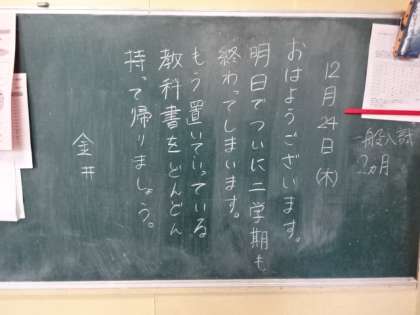 12月24日(木)
一般入試
2ヵ月
おはようございます。
明日でついに二学期も
終わってしまいます。
もう置いていっている
教科書をどんどん
持って帰りましょう。
金井